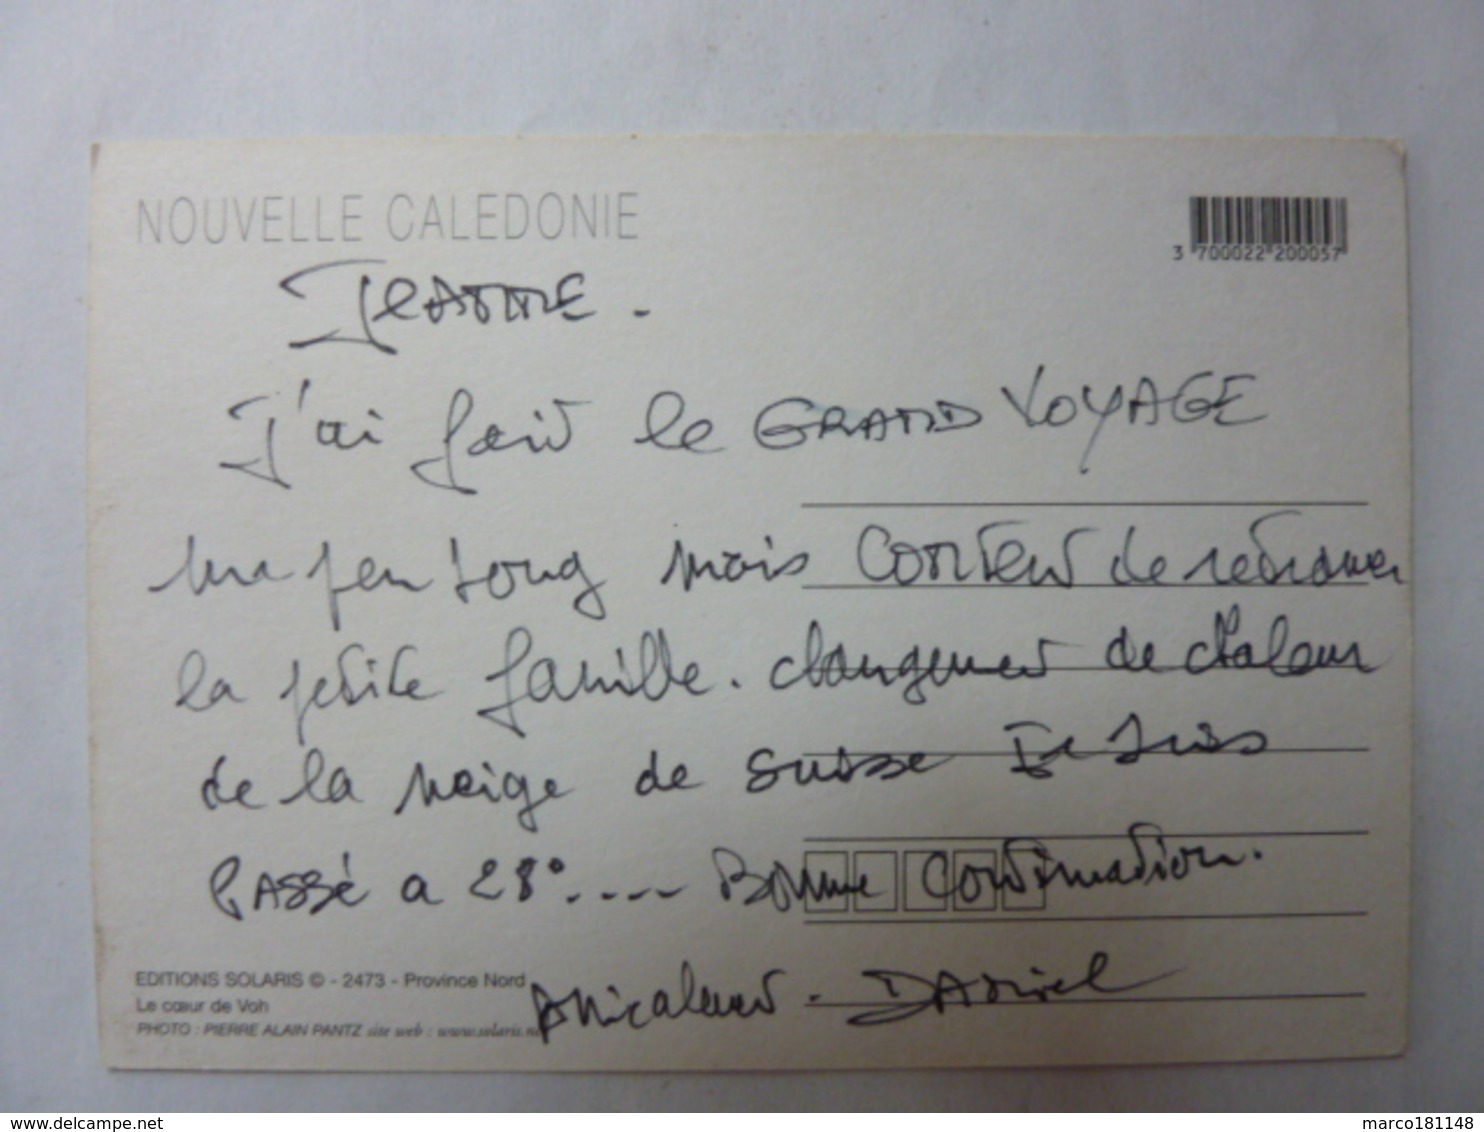 NOUVELLE CALEDONIE
3 700022 200057
JEANNE.
J'ai fait le GRAND VOYAGE
un peu long mais CONTENT de retrouver
la petite famille. changement de chaleur
de la neige de Suisse Je suis
PASSÉ a 28°..... BONNE continuation.
Amicalement. DANIEL
EDITIONS SOLARIS © - 2473 - Province Nord
Le cœur de Voh
PHOTO : PIERRE ALAIN PANTZ site web : www.solaris.nc
delcampe.net
marco181148